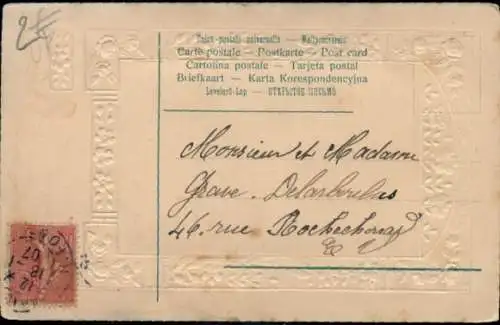 2f
Union postale universelle — Weltpostverein
Carte postale — Postkarte — Post card
Cartolina postale — Tarjeta postal
Briefkaart — Karta Korespondencyjna
Levelező-Lap — ОТКРЫТОЕ ПИСЬМО
Monsieur et Madame
Grave
46, rue Rochechouart
E V
07
18
12